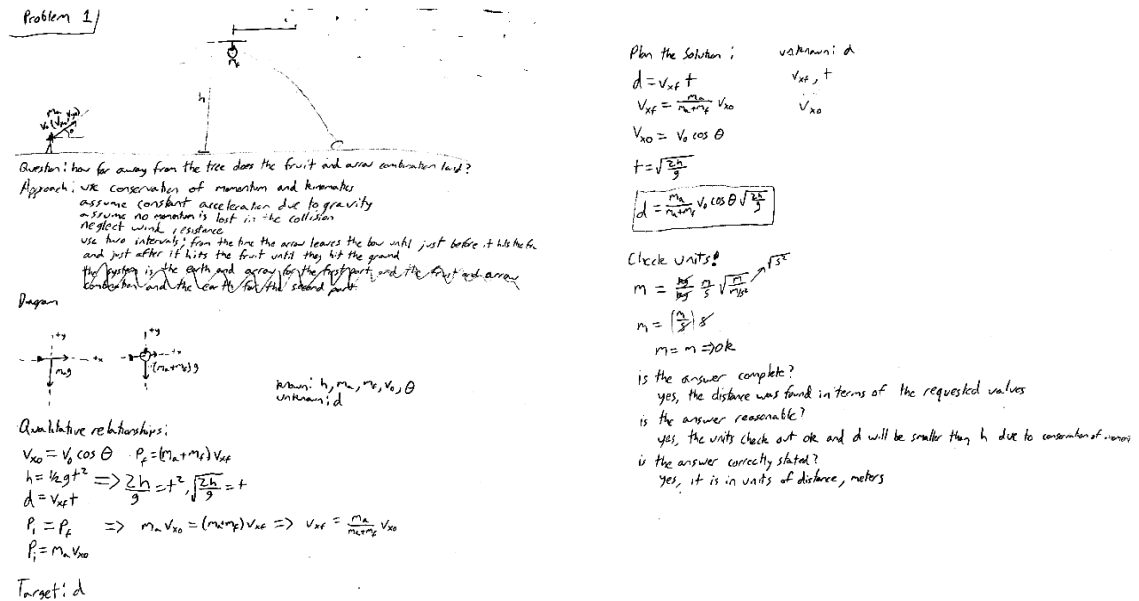 Problem 1
m_f
h
m_a
θ
Question: how far away from the tree does the fruit and arrow combination land?
Approach: use conservation of momentum and kinematics
assume constant acceleration due to gravity
assume no momentum is lost in the collision
neglect wind resistance
use two intervals; from the time the arrow leaves the bow until just before it hits the
and just after it hits the fruit until they hit the ground
the system is the earth and arrow for the first part, and the fruit and arrow
combination and the earth for the second part
Diagram
+y
+x
m_a g
+y
+x
(m_a+m_f)g
known: h, m_a, m_f, v_0, θ
unknown: d
Qualitative relationships:
v_x0 = v_0 cos θ P_f = (m_a+m_f) v_xf
h = 1/2 g t² => 2h/g = t², √(2h/g) = t
d = v_xf t
P_i = P_f => m_a v_x0 = (m_a+m_f) v_xf => v_xf = m_a/(m_a+m_f) v_x0
P_i = m_a v_x0
Target: d
Plan the Solution: unknown: d
d = v_xf t v_xf, t
v_xf = m_a/(m_a+m_f) v_x0 v_x0
v_x0 = v_0 cos θ
t = √(2h/g)
d = m_a/(m_a+m_f) v_0 cos θ √(2h/g)
Check units!
m = kg/kg m/s √(m/(m/s²)) √s²
m = (m/s) s
m = m => ok
is the answer complete?
yes, the distance was found in terms of the requested values
is the answer reasonable?
yes, the units check out ok and d will be smaller than h due to conservation of
is the answer correctly stated?
yes, it is in units of distance, meters